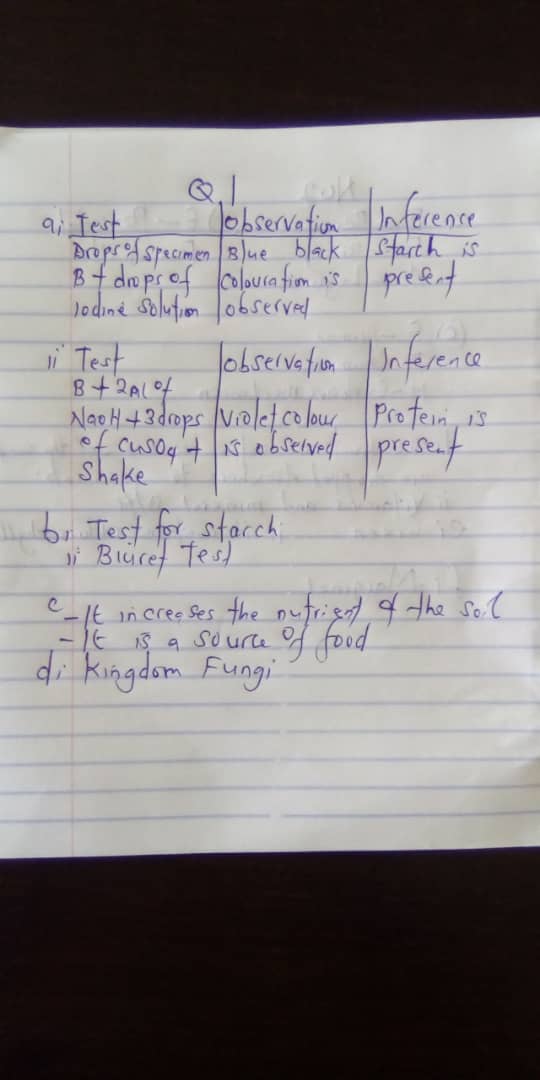 Q 1
ai Test Observation Inference
Drops of specimen Blue black Starch is
B + drops of Colouration is present
Iodine Solution observed
ii Test observation Inference
B + 2ml of
NaOH + 3drops Violet colour Protein is
of CuSO4 + is observed present
Shake
bi Test for starch
ii Biuret Test
c - It increases the nutrient of the soil
- It is a source of food
di Kingdom Fungi